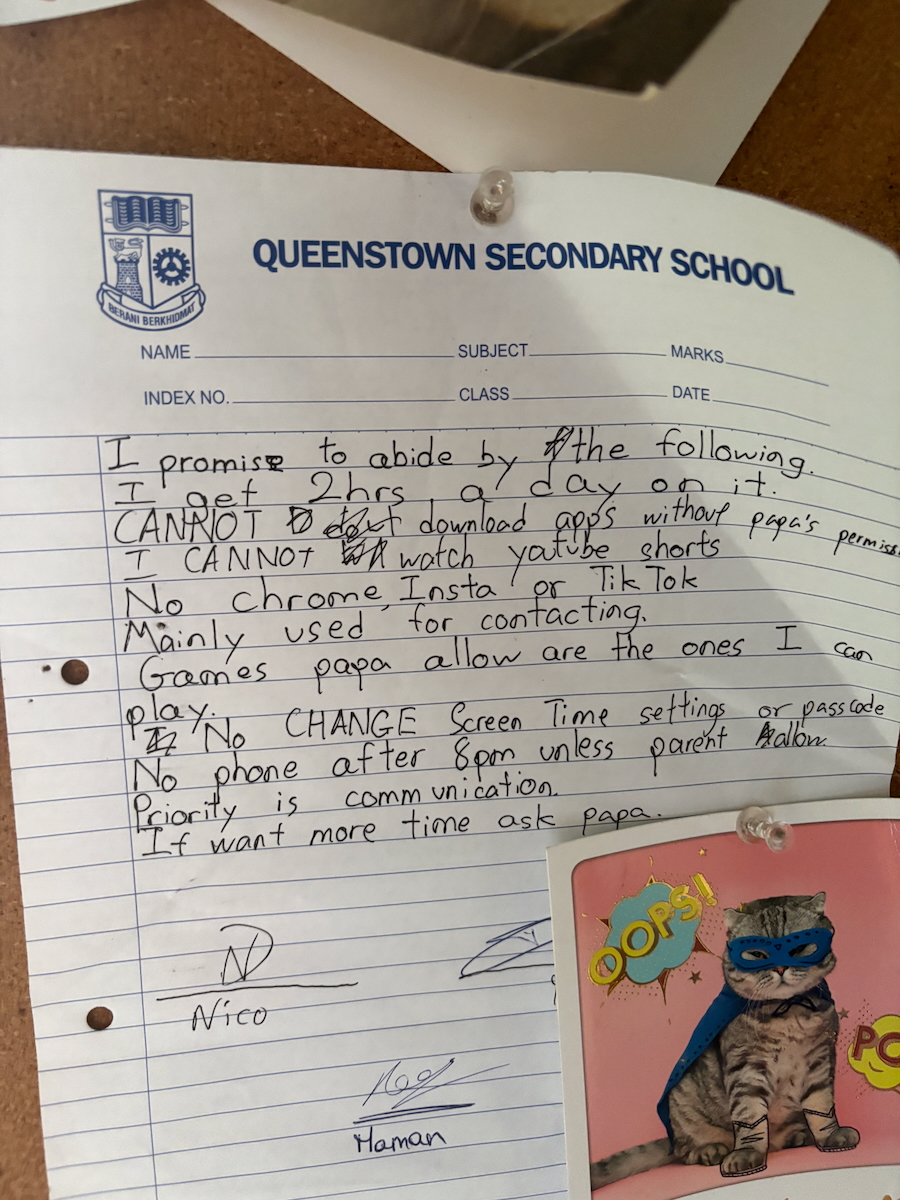 BERANI BERKHIDMAT
QUEENSTOWN SECONDARY SCHOOL
NAME SUBJECT MARKS
INDEX NO. CLASS DATE
I promise to abide by the following.
I get 2hrs a day on it.
CANNOT download apps without papa's permiss
I CANNOT watch youtube shorts
No chrome, Insta or TikTok
Mainly used for contacting.
Games papa allow are the ones I can
play.
No CHANGE Screen Time settings or passcode
No phone after 8pm unless parent allow
Priority is communication.
If want more time ask papa.
ND
Nico
Maman
OOPS!
PO